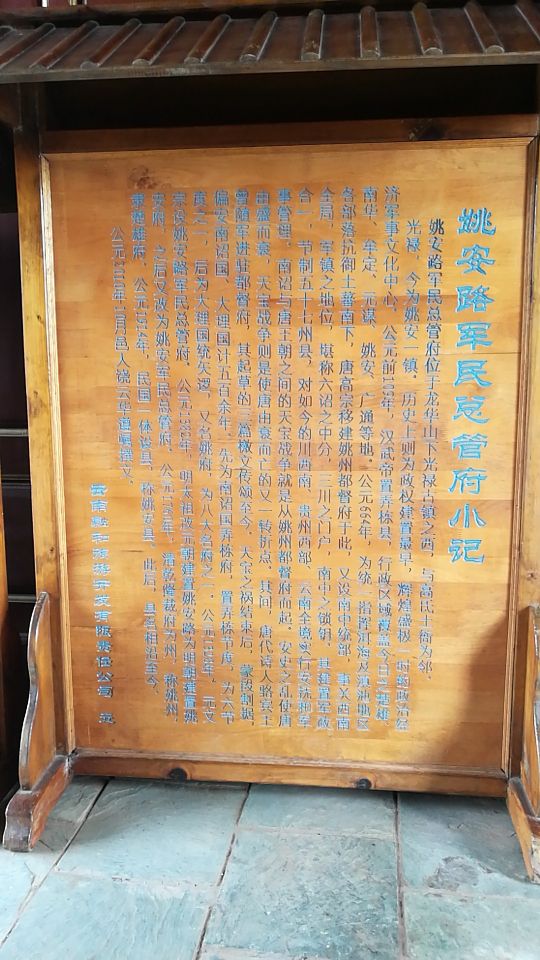 姚安路军民总管府小记
姚安路军民总管府位于龙华山下光禄古镇之西，与高氏土衙为邻。
光禄，今为姚安一镇。历史上则为政权建置最早，辉煌盛极一时的政治经
济军事文化中心。公元前109年，汉武帝置弄栋县，行政区域覆盖今日之楚雄、
南华、牟定、元谋、姚安、广通等地。公元664年，为统一指挥洱海及滇池地区
各部落抗御土蕃南下，唐高宗移建姚州都督府于此，又设南中统部，事关西南
全局，军镇之地位，堪称六诏之中分，三川之门户，南中之锁钥，其建置军政
合一，节制五十七州县，对如今的川西南、贵州西部、云南全境实行安抚和军
事管理。南诏与唐王朝之间的天宝战争就是从姚州都督府而起。安史之乱使唐
由盛而衰，天宝战争则是使唐由衰而亡的又一转折点。其间，唐代诗人骆宾王
曾随军进驻都督府，其起草的三篇檄文传颂至今。天宝之祸结束后，蒙段割据
偏安南诏国、大理国计五百余年。先为南诏国弄栋府，置弄栋节度，为六节
度之一，后为大理国统矢逻，又名姚府，为八大名府之一。公元 年，元文
宗设姚安路军民总管府，公元1382年，明太祖改元朝建置姚安路为明朝建置姚
安府，之后又改为姚安军民总管府。公元 年，清乾隆裁府为州，称姚州，
隶楚雄府。公元 年，民国一体设县，称姚安县，此后，县名相沿至今。
公元 年 月邑人饶云华谨顿撰文。
云南 和旅游开发有限责任公司 立